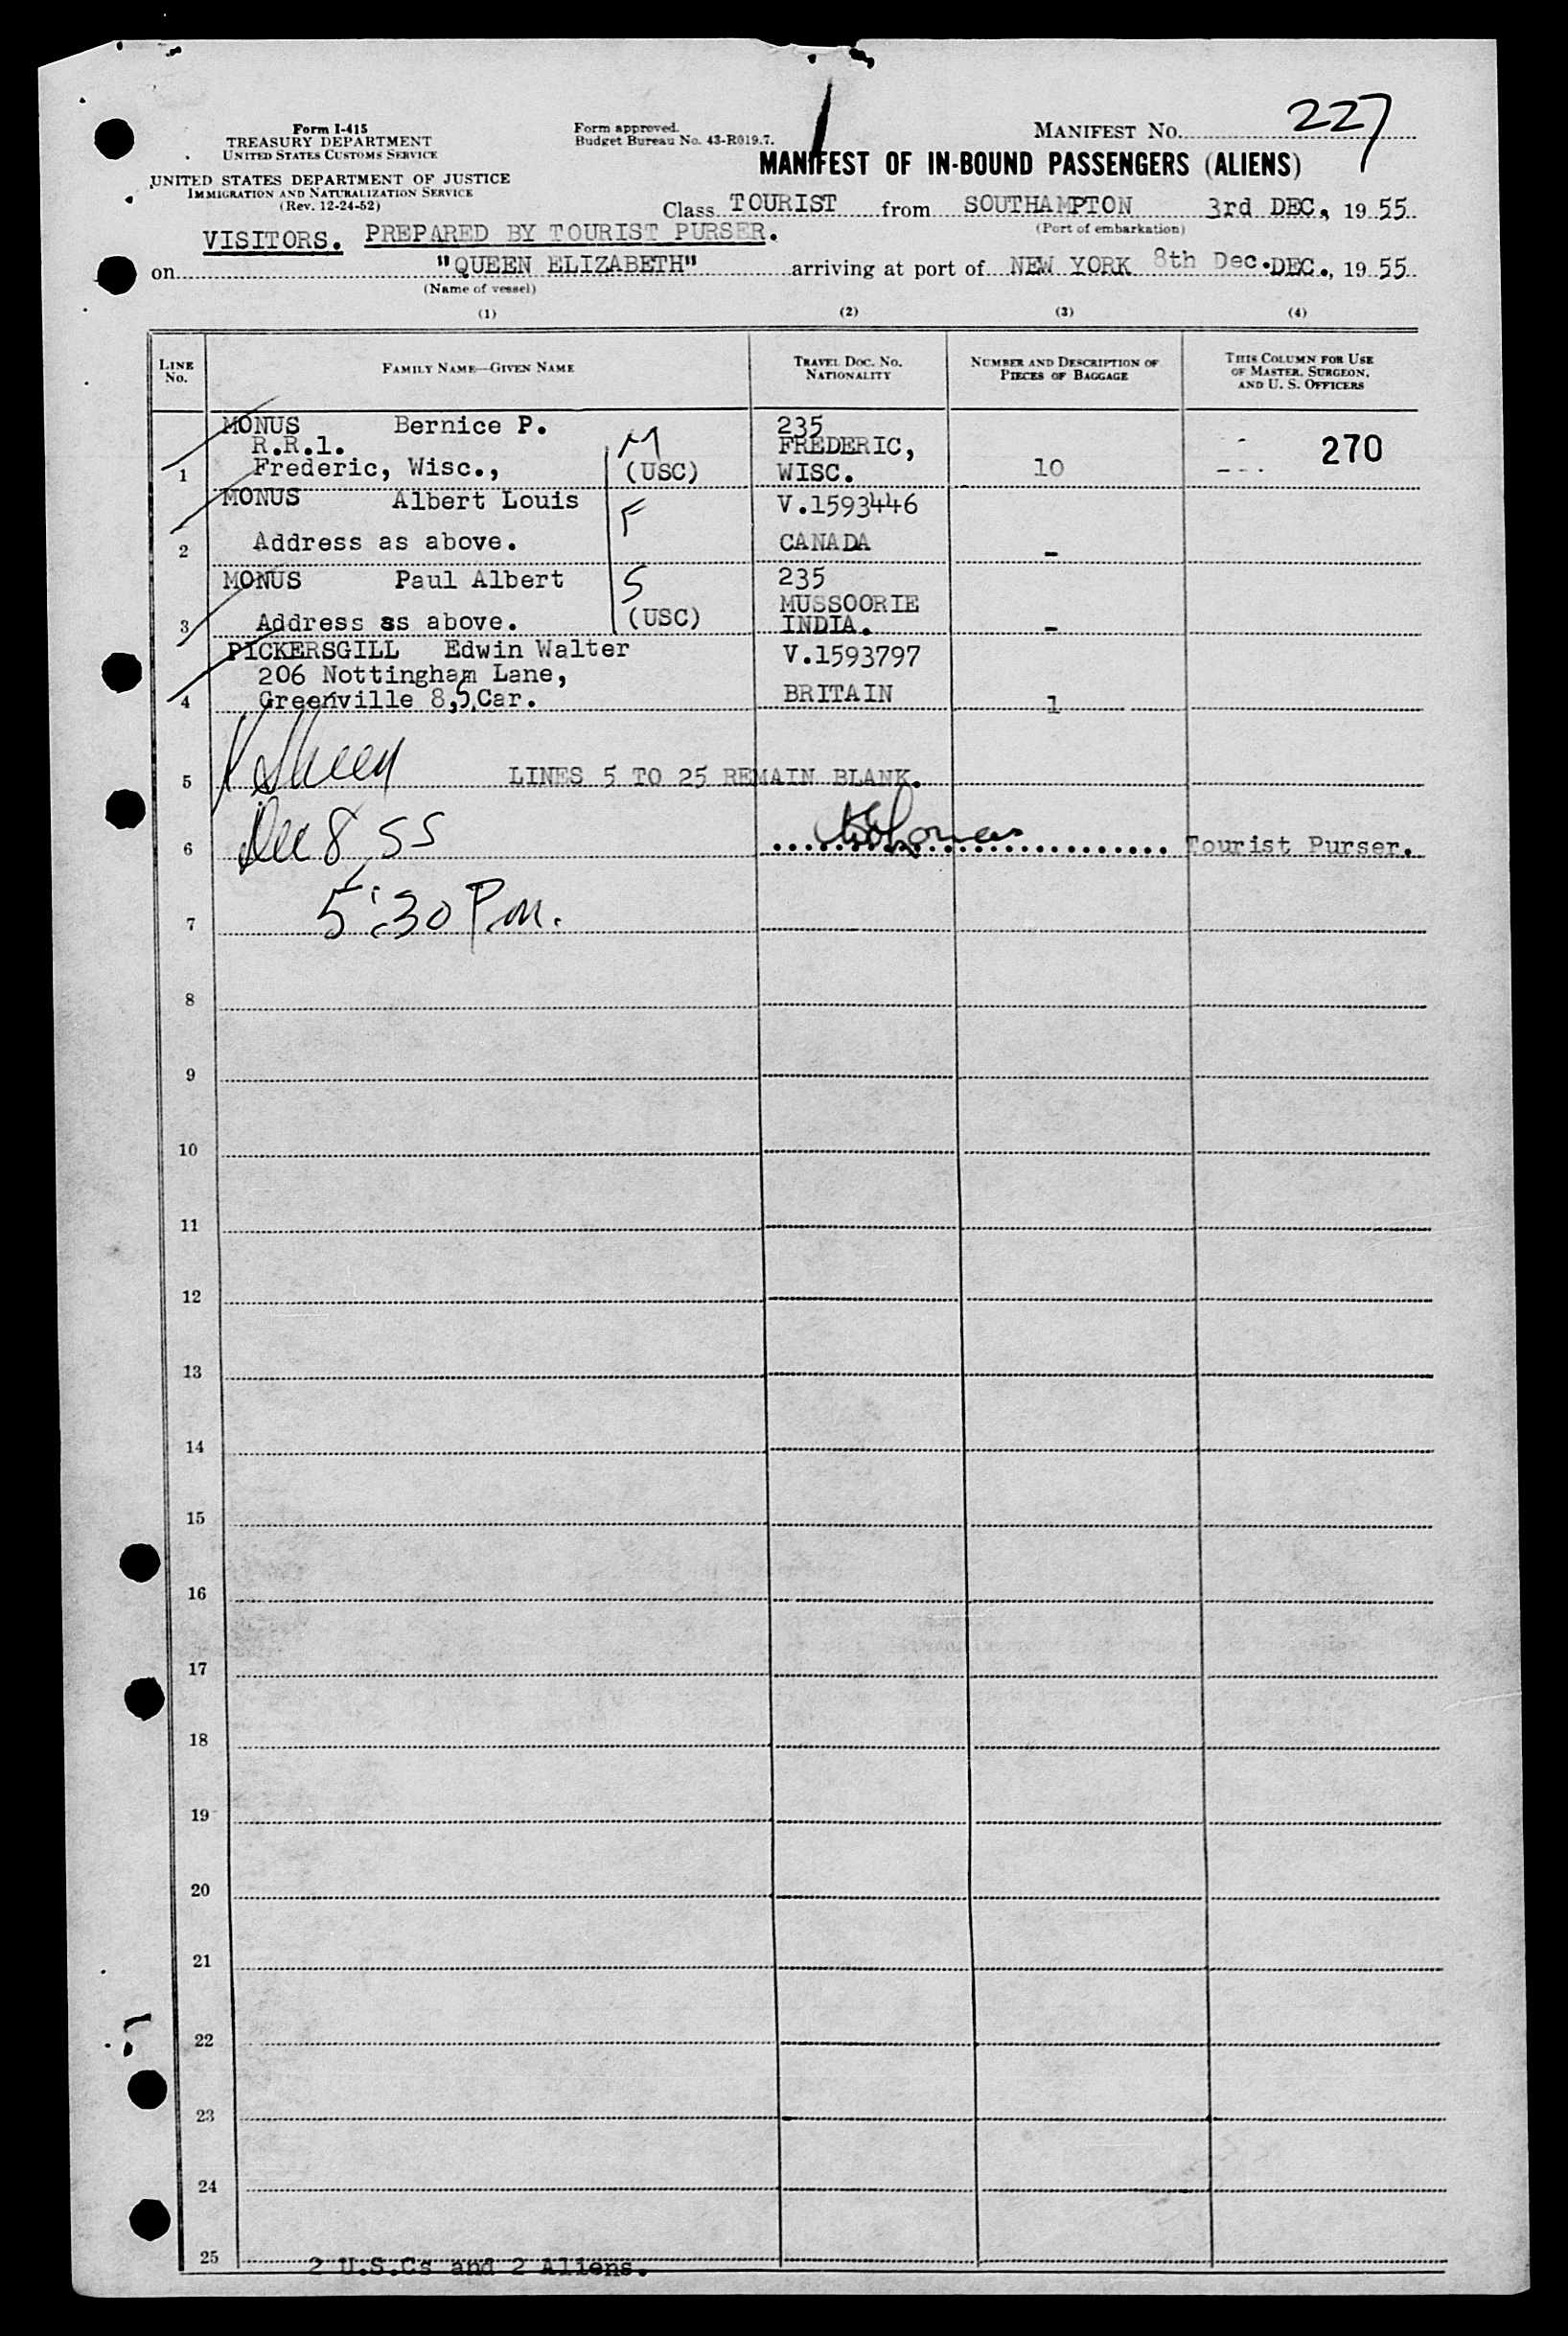 227
Form I-415
TREASURY DEPARTMENT
UNITED STATES CUSTOMS SERVICE
Form approved.
Budget Bureau No. 43-R019.7.
MANIFEST NO.
MANIFEST OF IN-BOUND PASSENGERS (ALIENS)
UNITED STATES DEPARTMENT OF JUSTICE
IMMIGRATION AND NATURALIZATION SERVICE
(Rev. 12-24-52)
Class TOURIST from SOUTHAMPTON 3rd DEC., 1955
(Port of embarkation)
VISITORS. PREPARED BY TOURIST PURSER.
on "QUEEN ELIZABETH" arriving at port of NEW YORK 8th Dec. DEC., 1955
(Name of vessel)
(1) (2) (3) (4)
LINE NO. FAMILY NAME—GIVEN NAME TRAVEL DOC. NO. NATIONALITY NUMBER AND DESCRIPTION OF PIECES OF BAGGAGE THIS COLUMN FOR USE OF MASTER, SURGEON, AND U. S. OFFICERS
MONUS Bernice P. 235
R.R.1. M FREDERIC, 270
1 Frederic, Wisc., (USC) WISC. 10
MONUS Albert Louis F V.1593446
2 Address as above. CANADA -
MONUS Paul Albert S 235
MUSSOORIE
3 Address as above. (USC) INDIA. -
PICKERSGILL Edwin Walter V.1593797
206 Nottingham Lane,
4 Greenville 8, S. Car. BRITAIN 1
5 LINES 5 TO 25 REMAIN BLANK.
6 Dec 8, 55 Tourist Purser.
7 5:30 P.m.
8
9
10
11
12
13
14
15
16
17
18
19
20
21
22
23
24
25 2 U.S.Cs and 2 Aliens.